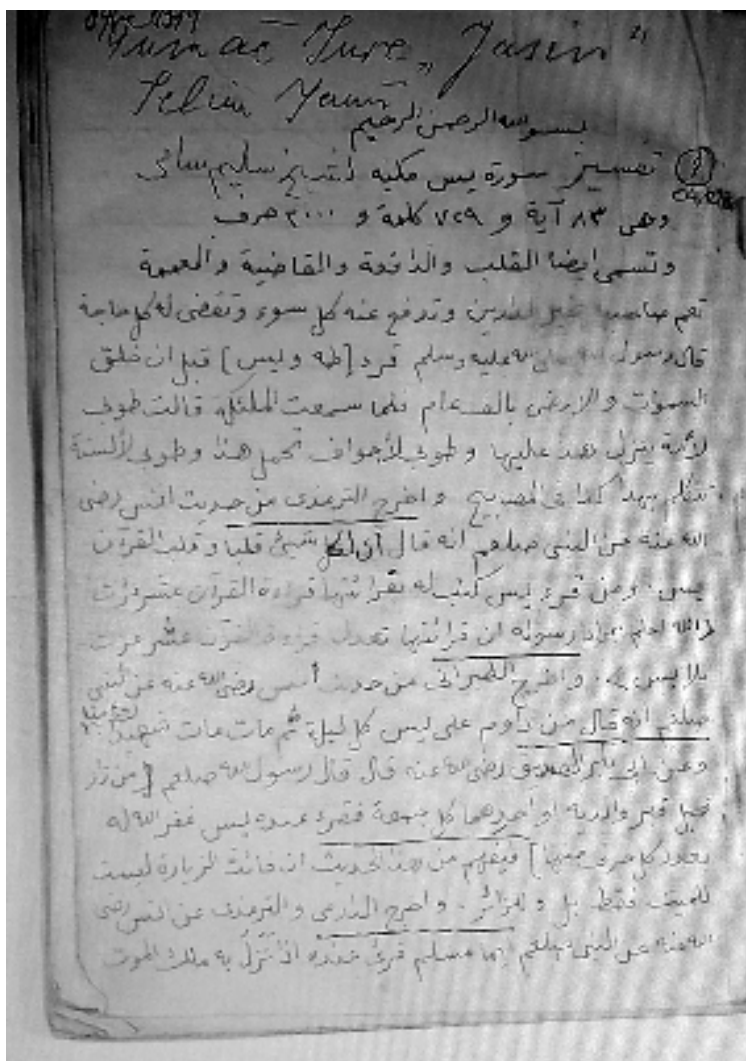 Tumač Sure „Jasin"
Selim Sami
بسم الله الرحمن الرحيم
تفسير سورة يس مكيه للشيخ سليم سامي
وهى ٨٣ آية و ٧٢٩ كلمة و ٣٠٠٠ حرف
وتسمى ايضا القلب والدافعة والقاضية والمعممة
تعم صاحبها خير الدارين وتدفع عنه كل سوء وتقضى له كل حاجة
قال رسول الله صلى الله عليه وسلم قرء [طه ويس] قبل ان خلق
السموات والارض بالف عام فلما سمعت الملئكة قالت طوبى
لأمة ينزل هذا عليها و طوبى لأجواف تحمل هذا وطوبى لألسنة
تتكلم بهذا كذا فى المصابيح واخرج الترمذى من حديث انس رضى
الله عنه عن النبى صلعم انه قال ان لكل شيئ قلبا وقلب القرآن
يس ومن قرء يس كتب له بقرائتها قراءة القرآن عشر مرات
الله اعلم رسوله ان قرائتها تعدل قراءة القرآن عشر مرات
بلا يس واخرج الطبرانى من حديث أنس رضى الله عنه عن النبى
صلعم انه قال من داوم على يس كل ليلة ثم مات مات شهيدا
وعن ابى بكر الصديق رضى الله عنه قال قال رسول الله صلعم [من زار
قبر والديه او احدهما كل جمعة فقرء عنده يس غفر الله له
بعدد كل حرف منها] فيفهم من هذا الحديث ان فائدة الزيارة ليست
للميت فقط بل وللزائر واخرج الدارمى والترمذى عن انس رضى
الله عنه عن النبى صلعم ايما مسلم قرئ عنده اذا نزل به ملك الموت